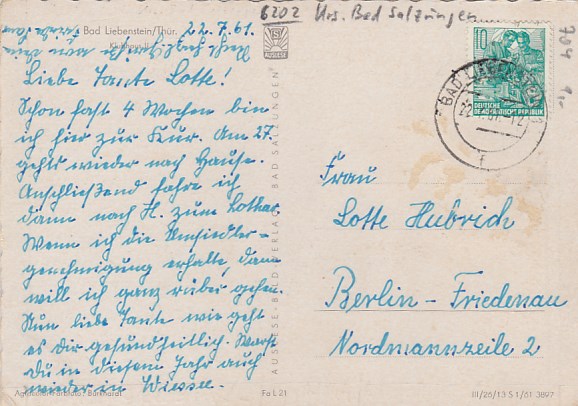 6202 Krs. Bad Salzungen
704
1,-
Bad Liebenstein/Thür.
22.7.61.
Liebe Tante Lotte!
Schon fast 4 Wochen bin
ich hier zur Kur. Am 27.
gehts wieder nach Hause.
Anschließend fahre ich
dann nach H. zum Lothar.
Wenn ich die Umsiedler-
genehmigung erhalte, dann
will ich ganz rüber gehen.
Nun liebe Tante wie geht
es Dir gesundheitlich. Warst
Du in diesem Jahr auch
wieder in Wiessee.
10
DEUTSCHE
DEMOKRATISCHE REPUBLIK
BAD LIEBENSTEIN
Frau
Lotte Hubrich
Berlin-Friedenau
Nordmannzeile 2
AUSLESE-BILD-VERLAG BAD SALZUNGEN
Fa L 21
III/26/13 S 1/61 3897